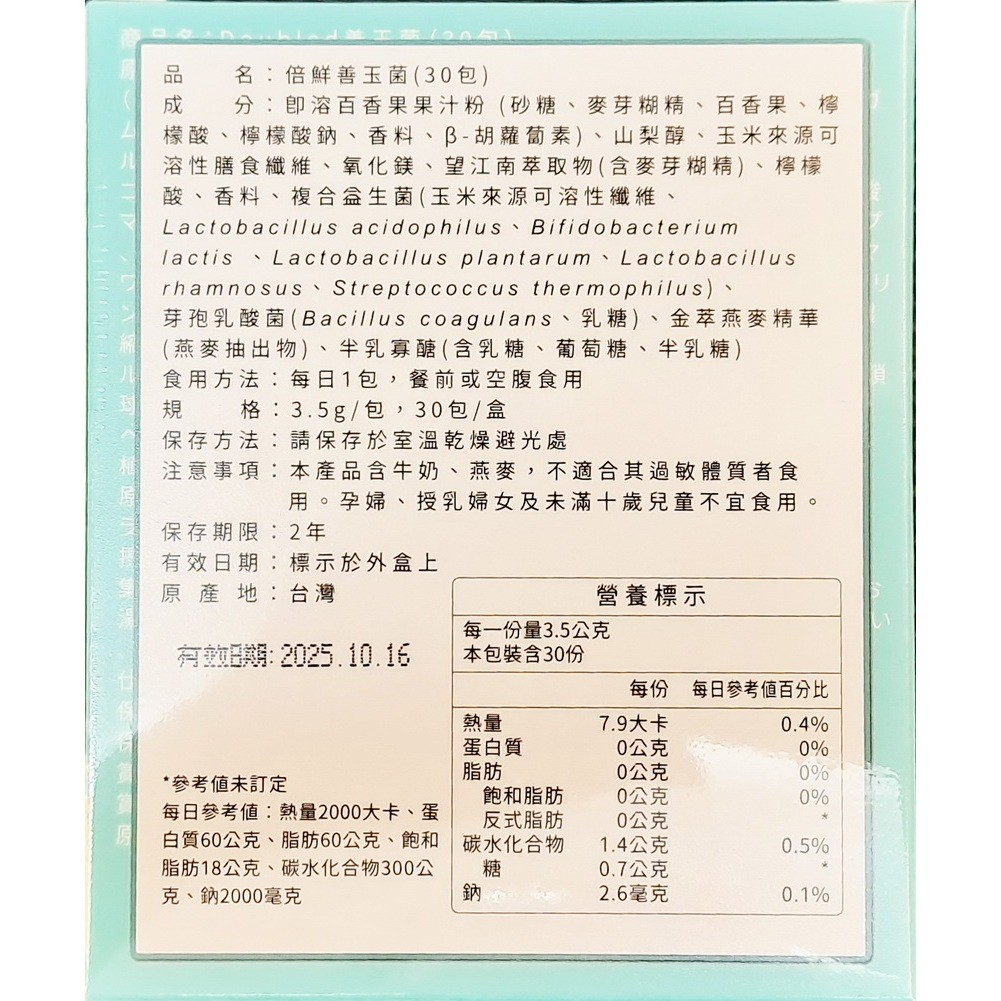 品　　名：倍鮮善玉菌(30包)
成　　分：即溶百香果果汁粉 (砂糖、麥芽糊精、百香果、檸
檬酸、檸檬酸鈉、香料、β-胡蘿蔔素)、山梨醇、玉米來源可
溶性膳食纖維、氧化鎂、望江南萃取物(含麥芽糊精)、檸檬
酸、香料、複合益生菌(玉米來源可溶性纖維、
Lactobacillus acidophilus、Bifidobacterium
lactis 、Lactobacillus plantarum、Lactobacillus
rhamnosus、Streptococcus thermophilus)、
芽孢乳酸菌(Bacillus coagulans、乳糖)、金萃燕麥精華
(燕麥抽出物)、半乳寡醣(含乳糖、葡萄糖、半乳糖)
食用方法：每日1包，餐前或空腹食用
規　　格：3.5g/包，30包/盒
保存方法：請保存於室溫乾燥避光處
注意事項：本產品含牛奶、燕麥，不適合其過敏體質者食
用。孕婦、授乳婦女及未滿十歲兒童不宜食用。
保存期限：2年
有效日期：標示於外盒上
原 產 地：台灣
有效日期: 2025.10.16
*參考值未訂定
每日參考值：熱量2000大卡、蛋
白質60公克、脂肪60公克、飽和
脂肪18公克、碳水化合物300公
克、鈉2000毫克
營養標示
每一份量3.5公克
本包裝含30份
每份 每日參考值百分比
熱量 7.9大卡 0.4%
蛋白質 0公克 0%
脂肪 0公克 0%
飽和脂肪 0公克 0%
反式脂肪 0公克 *
碳水化合物 1.4公克 0.5%
糖 0.7公克 *
鈉 2.6毫克 0.1%